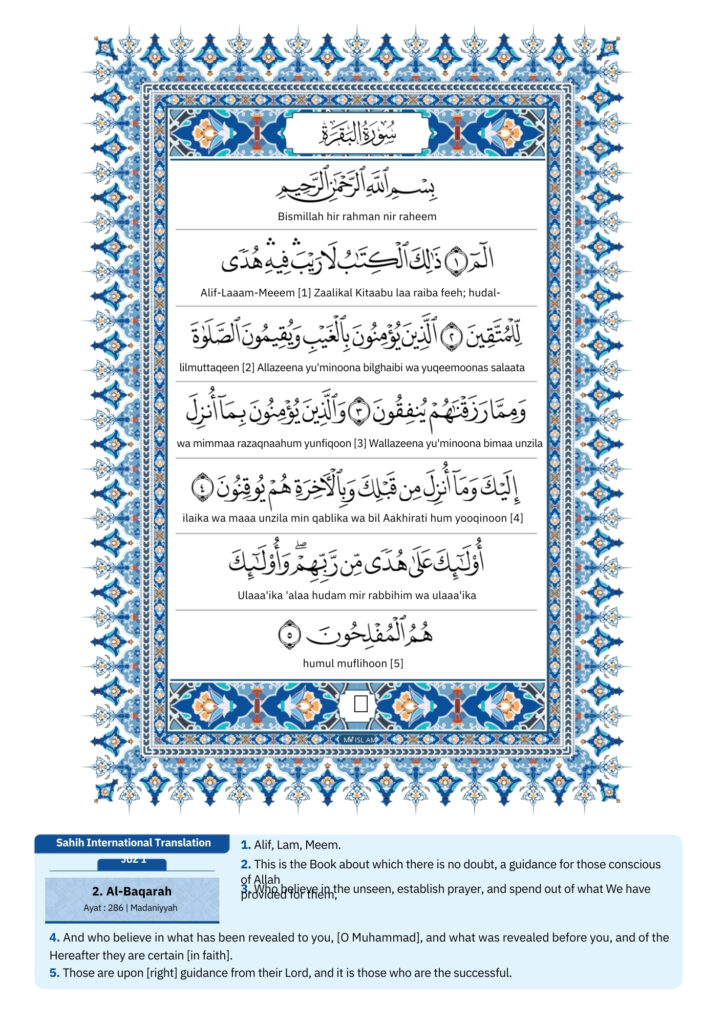 سُورَةُ البَقَرَةِ
بِسْمِ ٱللَّهِ ٱلرَّحْمَٰنِ ٱلرَّحِيمِ
Bismillah hir rahman nir raheem
الٓمٓ ١ ذَٰلِكَ ٱلْكِتَٰبُ لَا رَيْبَ ۛ فِيهِ ۛ هُدًى
Alif-Laaam-Meeem [1] Zaalikal Kitaabu laa raiba feeh; hudal-
لِّلْمُتَّقِينَ ٢ ٱلَّذِينَ يُؤْمِنُونَ بِٱلْغَيْبِ وَيُقِيمُونَ ٱلصَّلَوٰةَ
lilmuttaqeen [2] Allazeena yu'minoona bilghaibi wa yuqeemoonas salaata
وَمِمَّا رَزَقْنَٰهُمْ يُنفِقُونَ ٣ وَٱلَّذِينَ يُؤْمِنُونَ بِمَآ أُنزِلَ
wa mimmaa razaqnaahum yunfiqoon [3] Wallazeena yu'minoona bimaa unzila
إِلَيْكَ وَمَآ أُنزِلَ مِن قَبْلِكَ وَبِٱلْءَاخِرَةِ هُمْ يُوقِنُونَ ٤
ilaika wa maaa unzila min qablika wa bil Aakhirati hum yooqinoon [4]
أُو۟لَٰٓئِكَ عَلَىٰ هُدًى مِّن رَّبِّهِمْ ۖ وَأُو۟لَٰٓئِكَ
Ulaaa'ika 'alaa hudam mir rabbihim wa ulaaa'ika
هُمُ ٱلْمُفْلِحُونَ ٥
humul muflihoon [5]
MY ISLAM
Sahih International Translation
Juz 1
2. Al-Baqarah
Ayat : 286 | Madaniyyah
1. Alif, Lam, Meem.
2. This is the Book about which there is no doubt, a guidance for those conscious
of Allah
3. Who believe in the unseen, establish prayer, and spend out of what We have
provided for them,
4. And who believe in what has been revealed to you, [O Muhammad], and what was revealed before you, and of the
Hereafter they are certain [in faith].
5. Those are upon [right] guidance from their Lord, and it is those who are the successful.